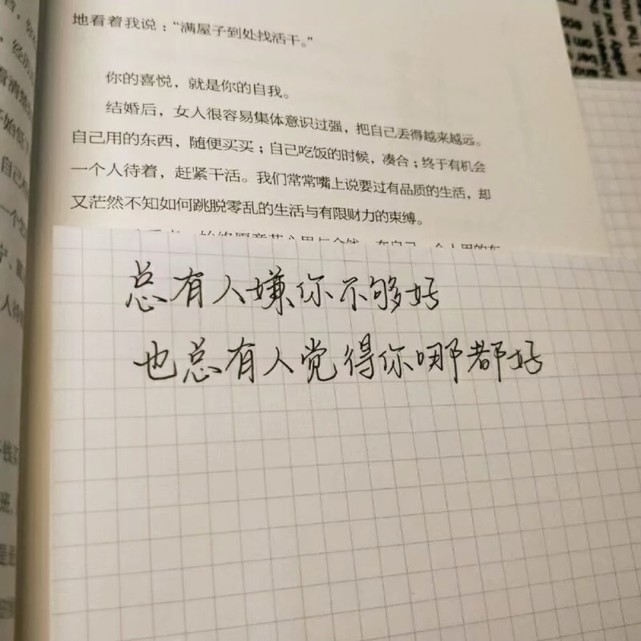 地看着我说：“满屋子到处找活干。”
你的喜悦，就是你的自我。
结婚后，女人很容易集体意识过强，把自己丢得越来越远。
自己用的东西，随便买买；自己吃饭的时候，凑合；终于有机会
一个人待着，赶紧干活。我们常常嘴上说要过有品质的生活，却
又茫然不知如何跳脱零乱的生活与有限财力的束缚。
总有人嫌你不够好
也总有人觉得你哪都好